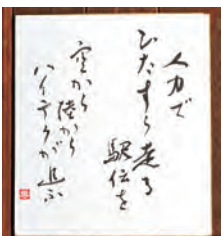 人力で
ひたすら走る
駅伝を
空から陸から
ハイテクが追ふ